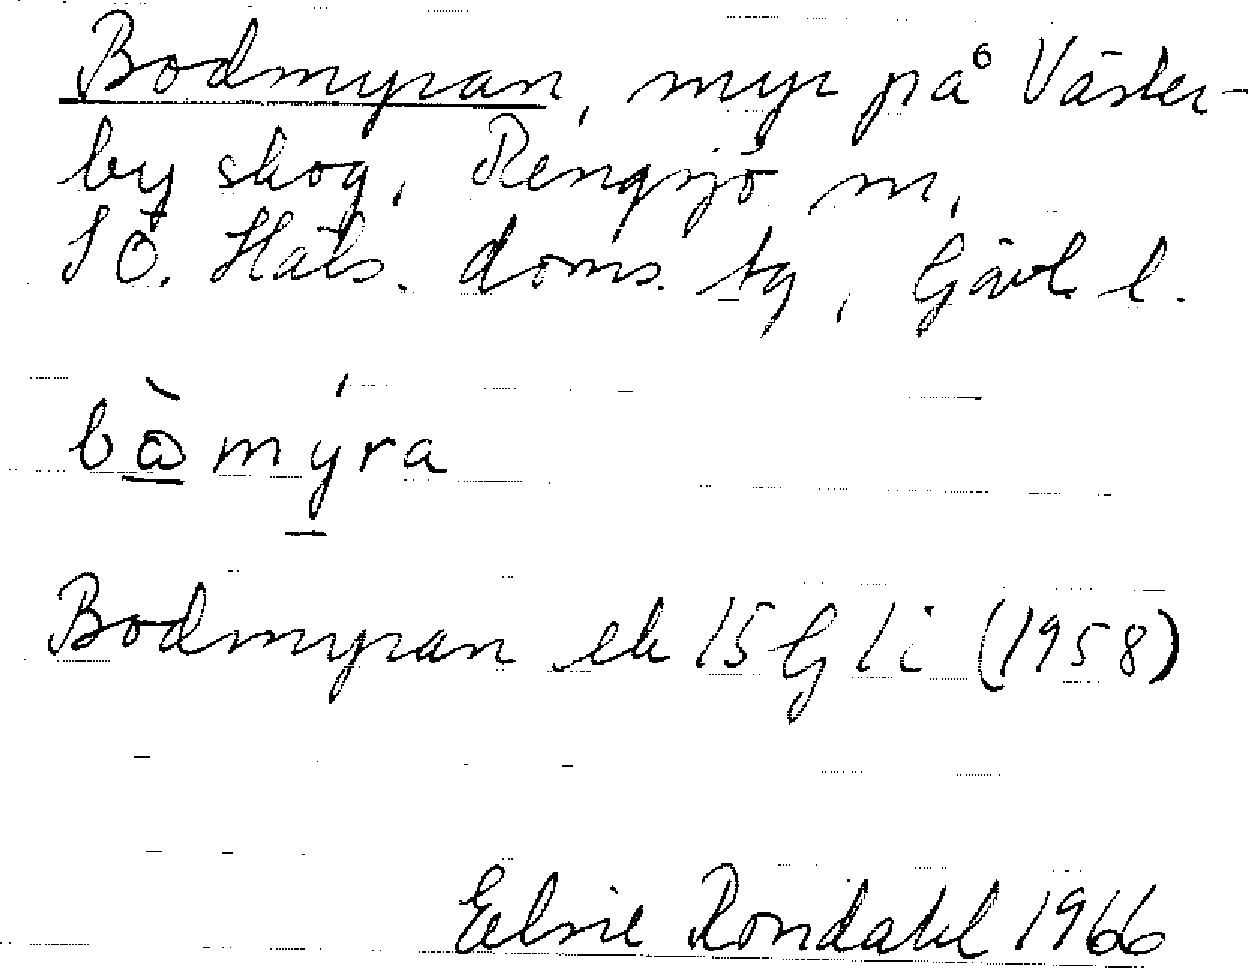 Bodmyran, myr på Väster-
by skog, Rengsjö sn,
SÖ. Häls. doms. tg, Gävl. l.
bòmýra
Bodmyran ek 15G 1i (1958)
Elsie Rondahl 1966